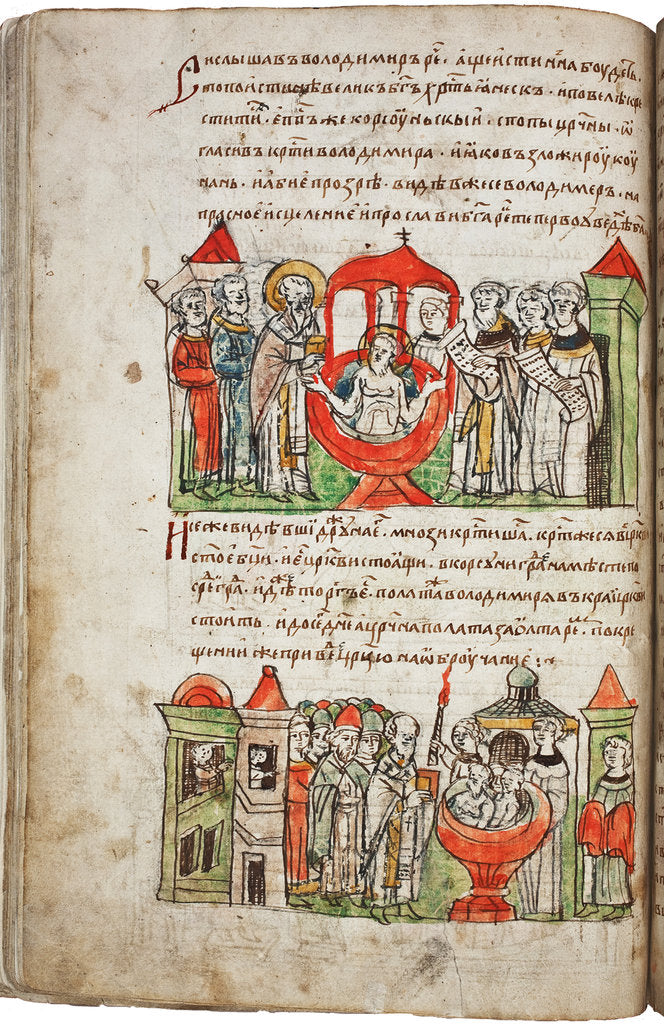 Си слышавъ володимиръ рⷱ҇е . аще истинна боудеть .
то поистинѣ великъ бг҃ъ хрⷭ҇тьꙗнескъ . и повелѣ кре
стити . епⷭ҇пъ же корсоуньскыи . с попы цр҃чны . ѡ
гласивъ крⷭ҇ти володимира . и ꙗко възложи роукоу
на нь . и абие прозрѣ . видѣвже се володимеръ . на
прасное исцеление и прослави бг҃а рⷱ҇е то первоу
И се же видѣвши дрꙋжина еⷢ . мнози крⷭ҇тишаⷭ . крⷭ҇т же ся въ цр҃кви
стое бц҃и . и еⷭ цр҃кви стоꙗщи . в корсуни граⷣ на мѣсте по
среⷣ граⷣ . идѣⷤ торгъ . полата володимиря въ краи цр҃кви
стоить . и до сеⷢ дне . а цр҃чна полата за ѡлтареⷨ . по кре
щении же приведе цр҃цю на ѡброучание :~